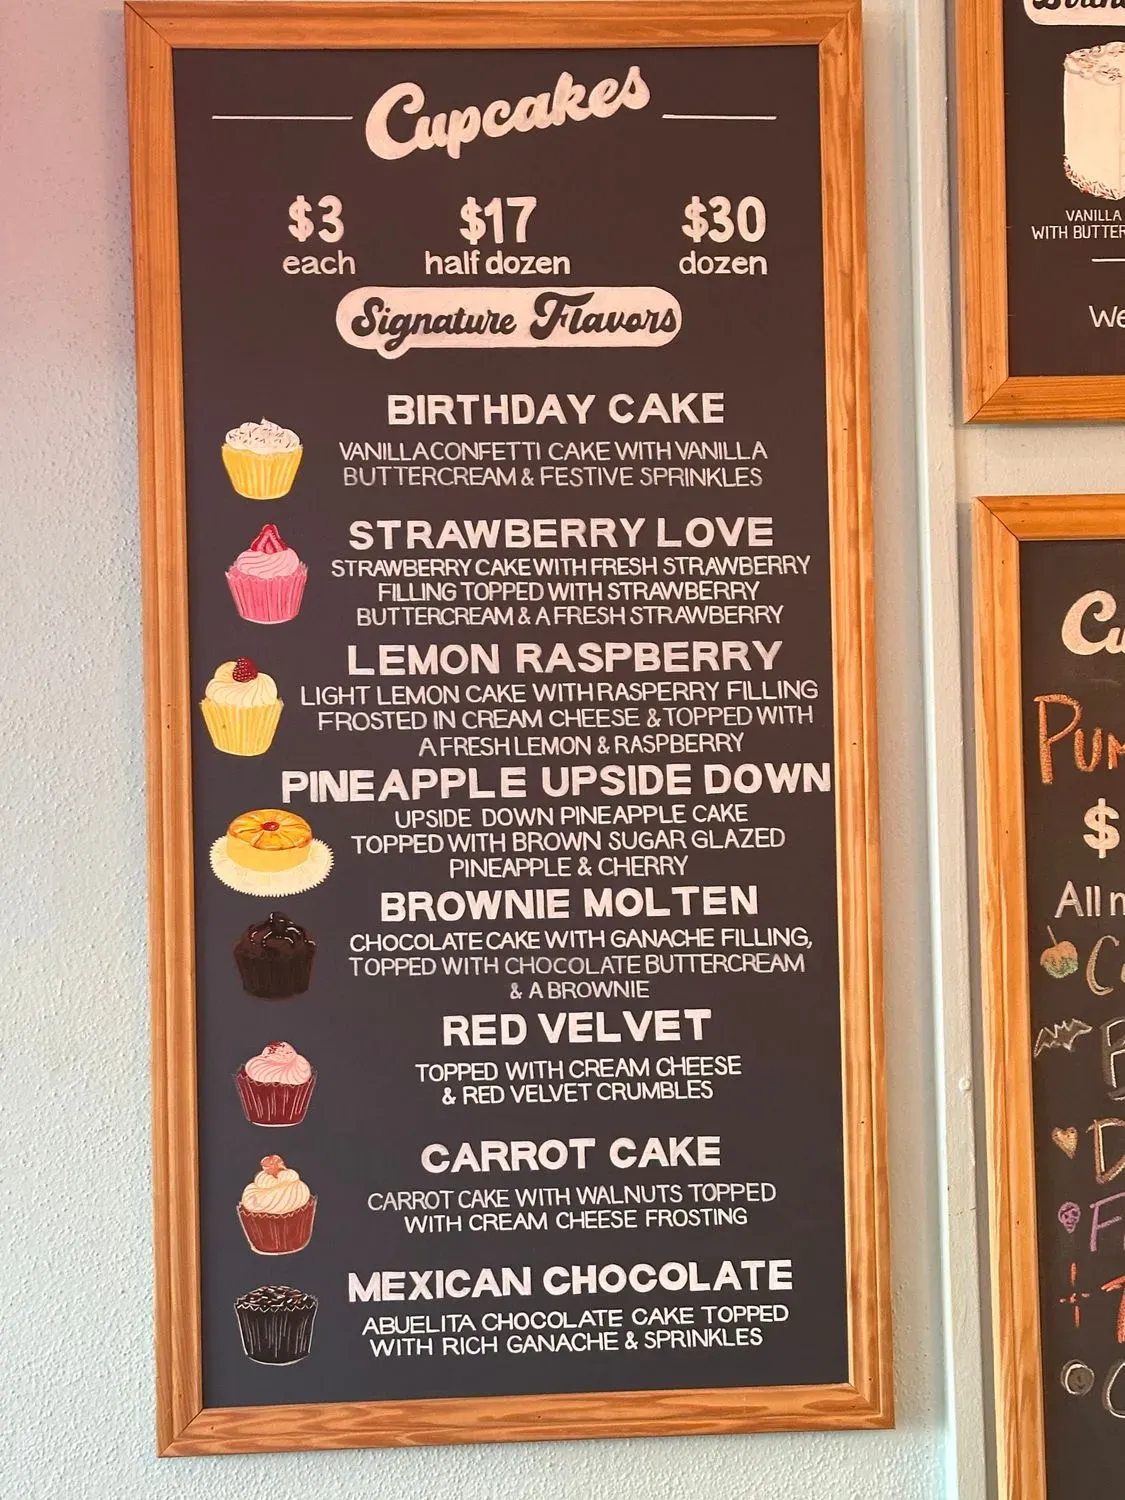 Cupcakes
$3 $17 $30
each half dozen dozen
Signature Flavors
BIRTHDAY CAKE
VANILLA CONFETTI CAKE WITH VANILLA
BUTTERCREAM & FESTIVE SPRINKLES
STRAWBERRY LOVE
STRAWBERRY CAKE WITH FRESH STRAWBERRY
FILLING TOPPED WITH STRAWBERRY
BUTTERCREAM & A FRESH STRAWBERRY
LEMON RASPBERRY
LIGHT LEMON CAKE WITH RASPERRY FILLING
FROSTED IN CREAM CHEESE & TOPPED WITH
A FRESH LEMON & RASPBERRY
PINEAPPLE UPSIDE DOWN
UPSIDE DOWN PINEAPPLE CAKE
TOPPED WITH BROWN SUGAR GLAZED
PINEAPPLE & CHERRY
BROWNIE MOLTEN
CHOCOLATE CAKE WITH GANACHE FILLING,
TOPPED WITH CHOCOLATE BUTTERCREAM
& A BROWNIE
RED VELVET
TOPPED WITH CREAM CHEESE
& RED VELVET CRUMBLES
CARROT CAKE
CARROT CAKE WITH WALNUTS TOPPED
WITH CREAM CHEESE FROSTING
MEXICAN CHOCOLATE
ABUELITA CHOCOLATE CAKE TOPPED
WITH RICH GANACHE & SPRINKLES
VANILLA
WITH BUTTER
We
$
All